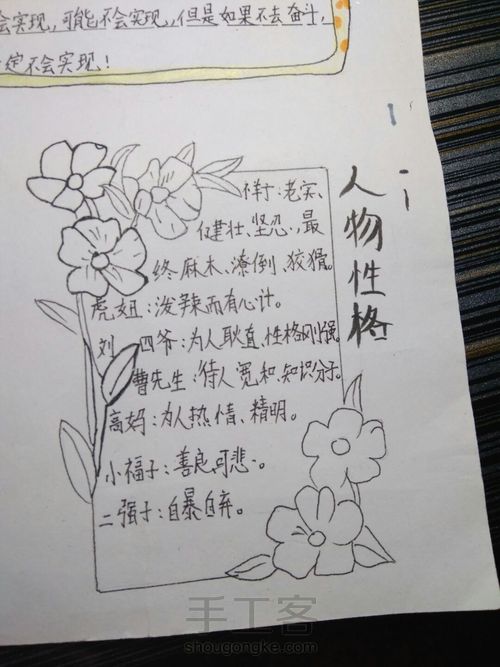 会实现,可能不会实现,但是如果不去奋斗,
定不会实现!
人物性格
祥子:老实、
健壮、坚忍,最
终麻木、潦倒、狡猾。
虎妞:泼辣而有心计。
刘四爷:为人耿直、性格刚强。
曹先生:待人宽和、知识分子。
高妈:为人热情、精明。
小福子:善良、可悲。
二强子:自暴自弃。
手工客
shougongke.com